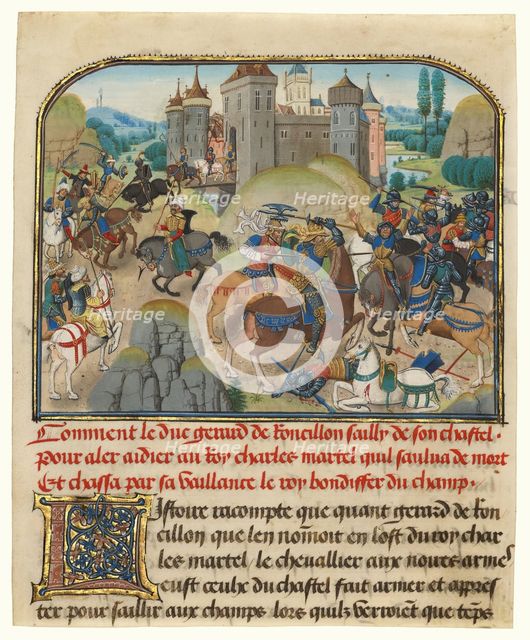 Comment le duc gerard de Roucillon sailly de son chastel.
Pour aler aidier au roy charles martel quil saulua de mort
Et chassa par sa vaillance le roy bondiffer du champ.
LIstoire racompte que quant gerard de Rou
cillon que len nōmoit en lost du roy char
les martel, le cheuallier aux noires armes
eust ceulx du chastel fait armer et appres
ter pour saillir aux champs lors quilz verroiēt que tēps
Heritage
Heritage
Heritage
Heritage
Heritage
Heritage
Heritage